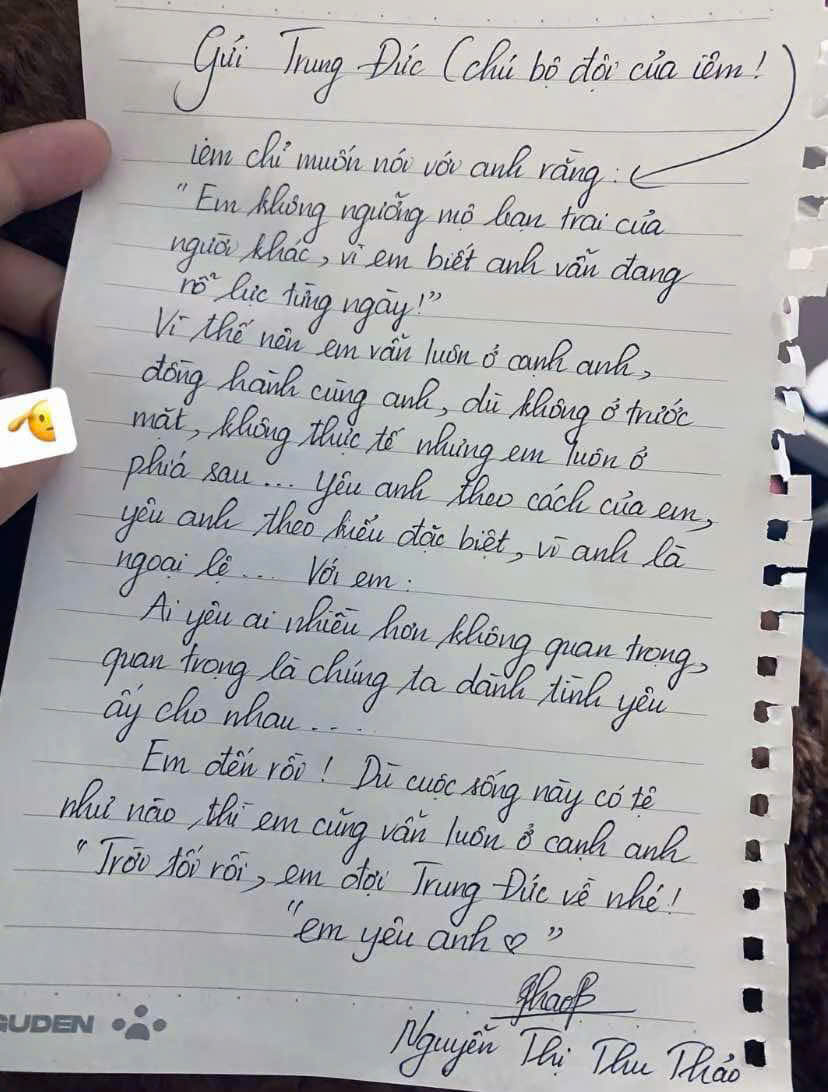 Gửi Trung Đức (chú bộ đội của iêm!)
iêm chỉ muốn nói với anh rằng:
"Em không ngưỡng mộ bạn trai của
người khác, vì em biết anh vẫn đang
nỗ lực từng ngày!"
Vì thế nên em vẫn luôn ở cạnh anh,
đồng hành cùng anh, dù không ở trước
mặt, không thực tế nhưng em luôn ở
phía sau... yêu anh theo cách của em,
yêu anh theo kiểu đặc biệt, vì anh là
ngoại lệ... Với em:
Ai yêu ai nhiều hơn không quan trọng,
quan trọng là chúng ta dành tình yêu
ấy cho nhau....
Em đến rồi! Dù cuộc sống này có tệ
như nào, thì em cũng vẫn luôn ở cạnh anh
"Trời tối rồi, em đợi Trung Đức về nhé!
"em yêu anh ♡"
Nguyễn Thị Thu Thảo
GUDEN